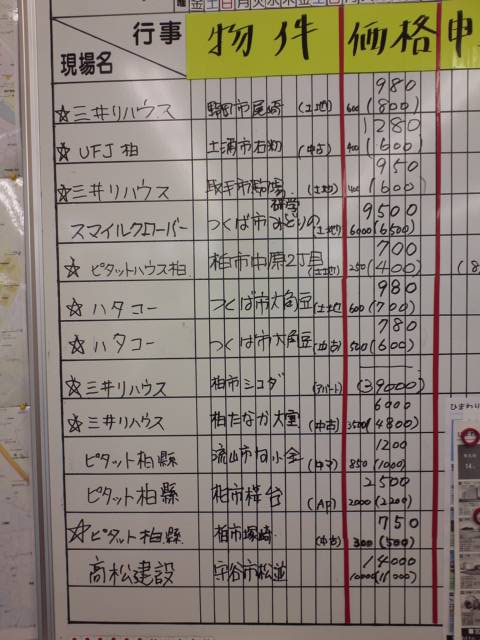 金土日月火水木金土日月
行事 物件 価格 申
現場名
☆三井リハウス 野田市尾崎 (土地) 980 600(800)
☆UFJ柏 土浦市右籾 (中古) 1280 400(600)
☆三井リハウス 取手市駒場 (土地) 950 400(600)
スマイルクローバー つくば市みどりの (土地) 9500 6000(6500)
研究学
☆ピタットハウス柏 柏市中原2丁目 (土地) 700 250(400)
☆ハタコー つくば市大角豆 (土地) 980 600(700)
☆ハタコー つくば市大角豆 (中古) 780 500(600)
☆三井リハウス 柏市シコダ (アパート) (39000)
☆三井リハウス 柏たなか大室 (中古) 6000 3500(4800)
ピタット柏縣 流山市 (中古) 1200 850(1000)
ピタット柏縣 柏市 台 (AP) 2500 2000(2200)
☆ピタット柏縣 柏市塚崎 (中古) 750 300(500)
高松建設 守谷市松並 14000 10000(11000)
ひまわり